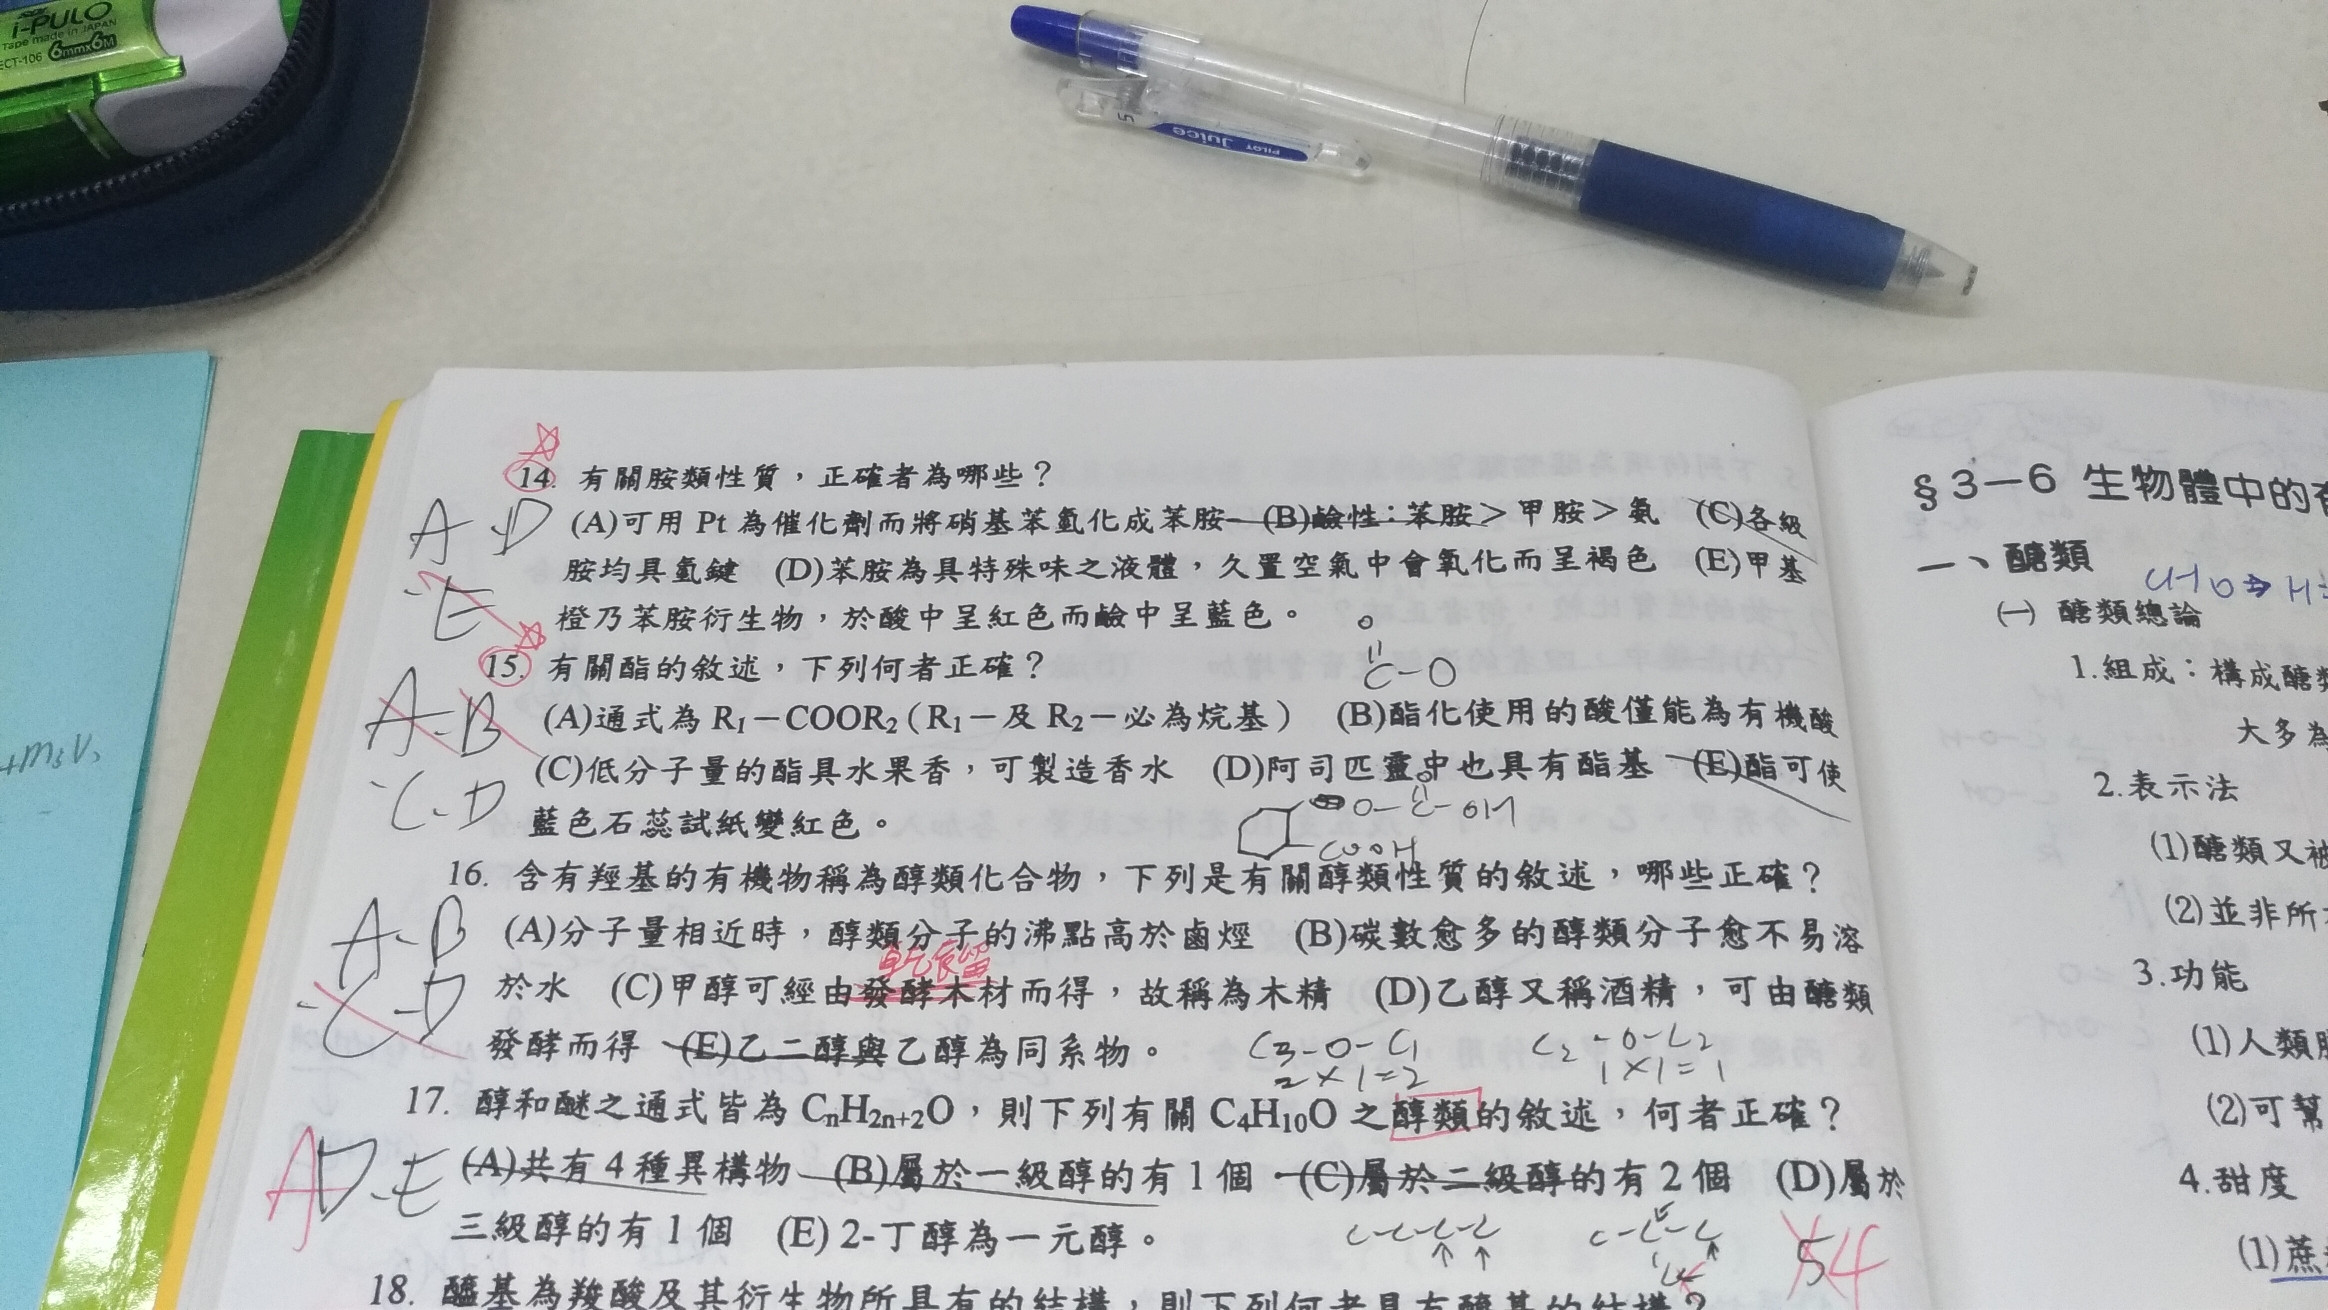 i-PULO
Tape made in JAPAN
ECT-106 6mmx6M
PILOT Juice 5
14. 有關胺類性質，正確者為哪些？
A D (A)可用 Pt 為催化劑而將硝基苯氫化成苯胺 (B)鹼性：苯胺＞甲胺＞氨 (C)各級
胺均具氫鍵 (D)苯胺為具特殊味之液體，久置空氣中會氧化而呈褐色 (E)甲基
E 橙乃苯胺衍生物，於酸中呈紅色而鹼中呈藍色。
O
15. 有關酯的敘述，下列何者正確？ C-O
A-B (A)通式為 R1－COOR2（R1－及 R2－必為烷基） (B)酯化使用的酸僅能為有機酸
(C)低分子量的酯具水果香，可製造香水 (D)阿司匹靈中也具有酯基 (E)酯可使
C-D 藍色石蕊試紙變紅色。
O-C-OH
COOH
16. 含有羥基的有機物稱為醇類化合物，下列是有關醇類性質的敘述，哪些正確？
A-B (A)分子量相近時，醇類分子的沸點高於鹵烴 (B)碳數愈多的醇類分子愈不易溶
乾餾
C-D 於水 (C)甲醇可經由發酵木材而得，故稱為木精 (D)乙醇又稱酒精，可由醣類
發酵而得 (E)乙二醇與乙醇為同系物。
C3-O-C1 C2-O-C2
2×1=2 1×1=1
17. 醇和醚之通式皆為 CnH2n+2O，則下列有關 C4H10O 之醇類的敘述，何者正確？
AD-E (A)共有 4 種異構物 (B)屬於一級醇的有 1 個 (C)屬於二級醇的有 2 個 (D)屬於
三級醇的有 1 個 (E) 2-丁醇為一元醇。
C-C-C-C C-C-C
C
5 4
18. 醯基為羧酸及其衍生物所具有的結構，則下列何者具有醯基的結構？
§3－6 生物體中的
一、醣類
CHO⇒H
(一) 醣類總論
1.組成：構成醣
大多為
2.表示法
(1)醣類又被
(2)並非所
3.功能
(1)人類
(2)可幫
4.甜度
(1)蔗